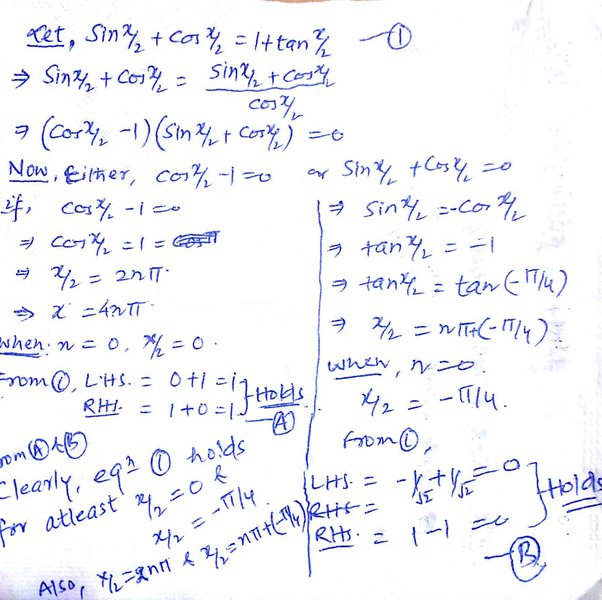 Let, Sin x/2 + cos x/2 = 1 + tan x/2 — ①
⇒ Sin x/2 + cos x/2 = (Sin x/2 + cos x/2) / cos x/2
⇒ (cos x/2 - 1)(Sin x/2 + cos x/2) = 0
Now, Either, cos x/2 - 1 = 0 or Sin x/2 + cos x/2 = 0
if, cos x/2 - 1 = 0
⇒ cos x/2 = 1 = cos π
⇒ x/2 = 2nπ.
⇒ x = 4nπ.
when. n = 0, x/2 = 0.
From ①, LHS. = 0+1 = 1
RHS. = 1+0 = 1
Holds
Ⓐ
⇒ Sin x/2 = -cos x/2
⇒ tan x/2 = -1
⇒ tan x/2 = tan (-π/4)
⇒ x/2 = nπ+(-π/4).
when, n = 0.
x/2 = -π/4.
From ①,
LHS. = -1/√2 + 1/√2 = 0
RHS =
RHS. = 1-1 = 0
Holds
— Ⓑ
From Ⓐ & Ⓑ
Clearly, eqn ① holds
for atleast x/2 = 0 &
x/2 = -π/4.
Also, x/2 = 2nπ & x/2 = nπ+(-π/4)